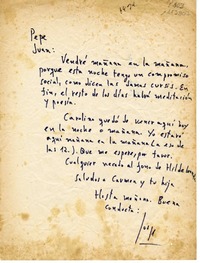 Pepe
Juan:
Vendré mañana en la mañana,
porque esta noche tengo un compromiso
social, como dicen las damas CURSIS. En
fin, el resto de los días habrá meditación
y poesía.
Carolina quedó de venir aquí hoy
en la noche o mañana. Yo estaré
aquí mañana en la mañana (a eso de
las 12.). Que me espere, por favor.
Cualquier recado al fono de Hilde
Saludos a Carmen y tu hija
Hasta mañana. Buena
conducta:
Jorge